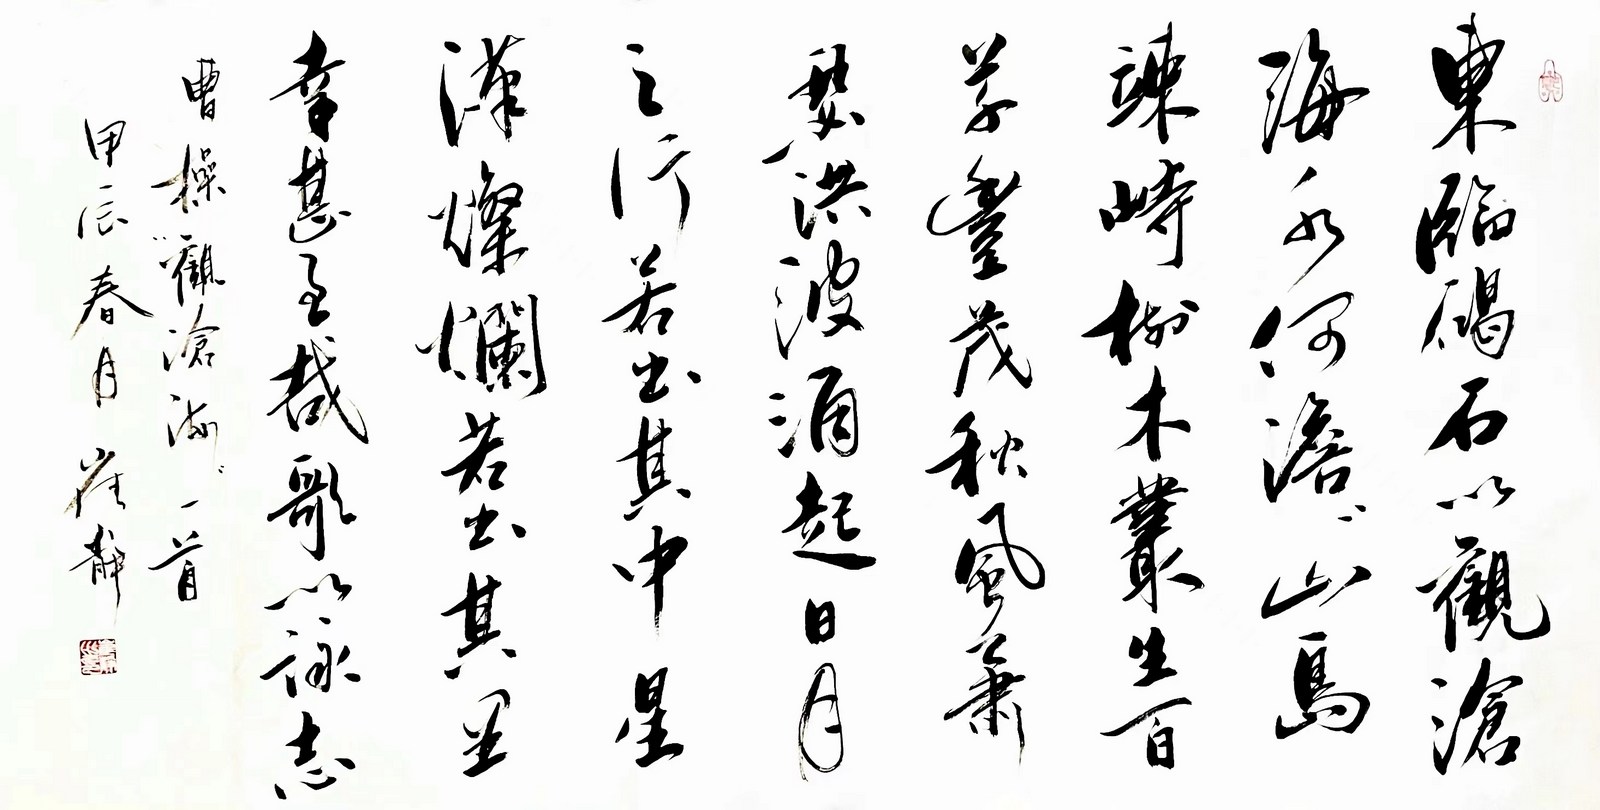 東臨碣石以觀滄
海水何澹〻山島
竦峙樹木叢生百
草豐茂秋風蕭
瑟洪波涌起日月
之行若出其中星
漢燦爛若出其里
幸甚至哉歌以詠志
曹操"觀滄海"一首
甲辰春月崔静